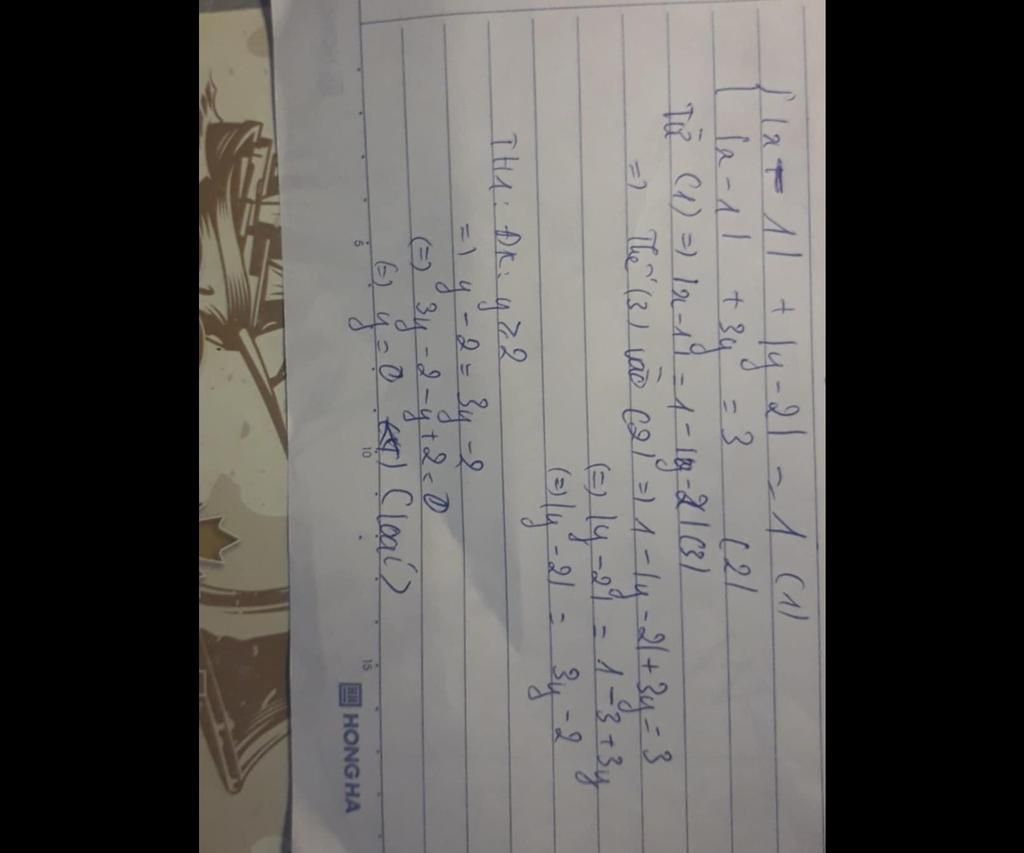 { |x - 1| + |y - 2| = 1 (1)
|x - 1| + 3y = 3 (2)
Từ (1) => |x - 1| = 1 - |y - 2| (3)
=> Thế (3) vào (2) => 1 - |y - 2| + 3y = 3
(=) |y - 2| = 1 - 3 + 3y
(=) |y - 2| = 3y - 2
TH1: ĐK: y ≥ 2
=> y - 2 = 3y - 2
(=) 3y - 2 - y + 2 = 0
(=) y = 0 (loại)
5 10 15
HH HONG HA